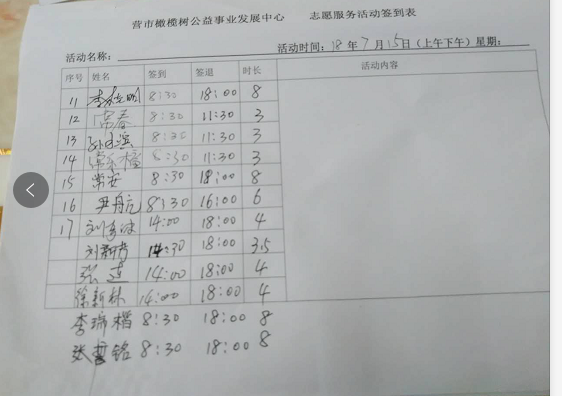 营市橄榄树公益事业发展中心 志愿服务活动签到表
活动名称: 活动时间: 18年7月15日(上午下午)星期:
序号 姓名 签到 签退 时长 活动内容
11 8:30 18:00 8
12 常春 8:30 11:30 3
13 8:30 11:30 3
14 8:30 11:30 3
15 常安 8:30 18:00 8
16 尹航 8:30 16:00 6
17 14:00 18:00 4
14:30 18:00 3.5
张 14:00 18:00 4
徐新林 14:00 18:00 4
李瑞 8:30 18:00 8
张哲铭 8:30 18:00 8